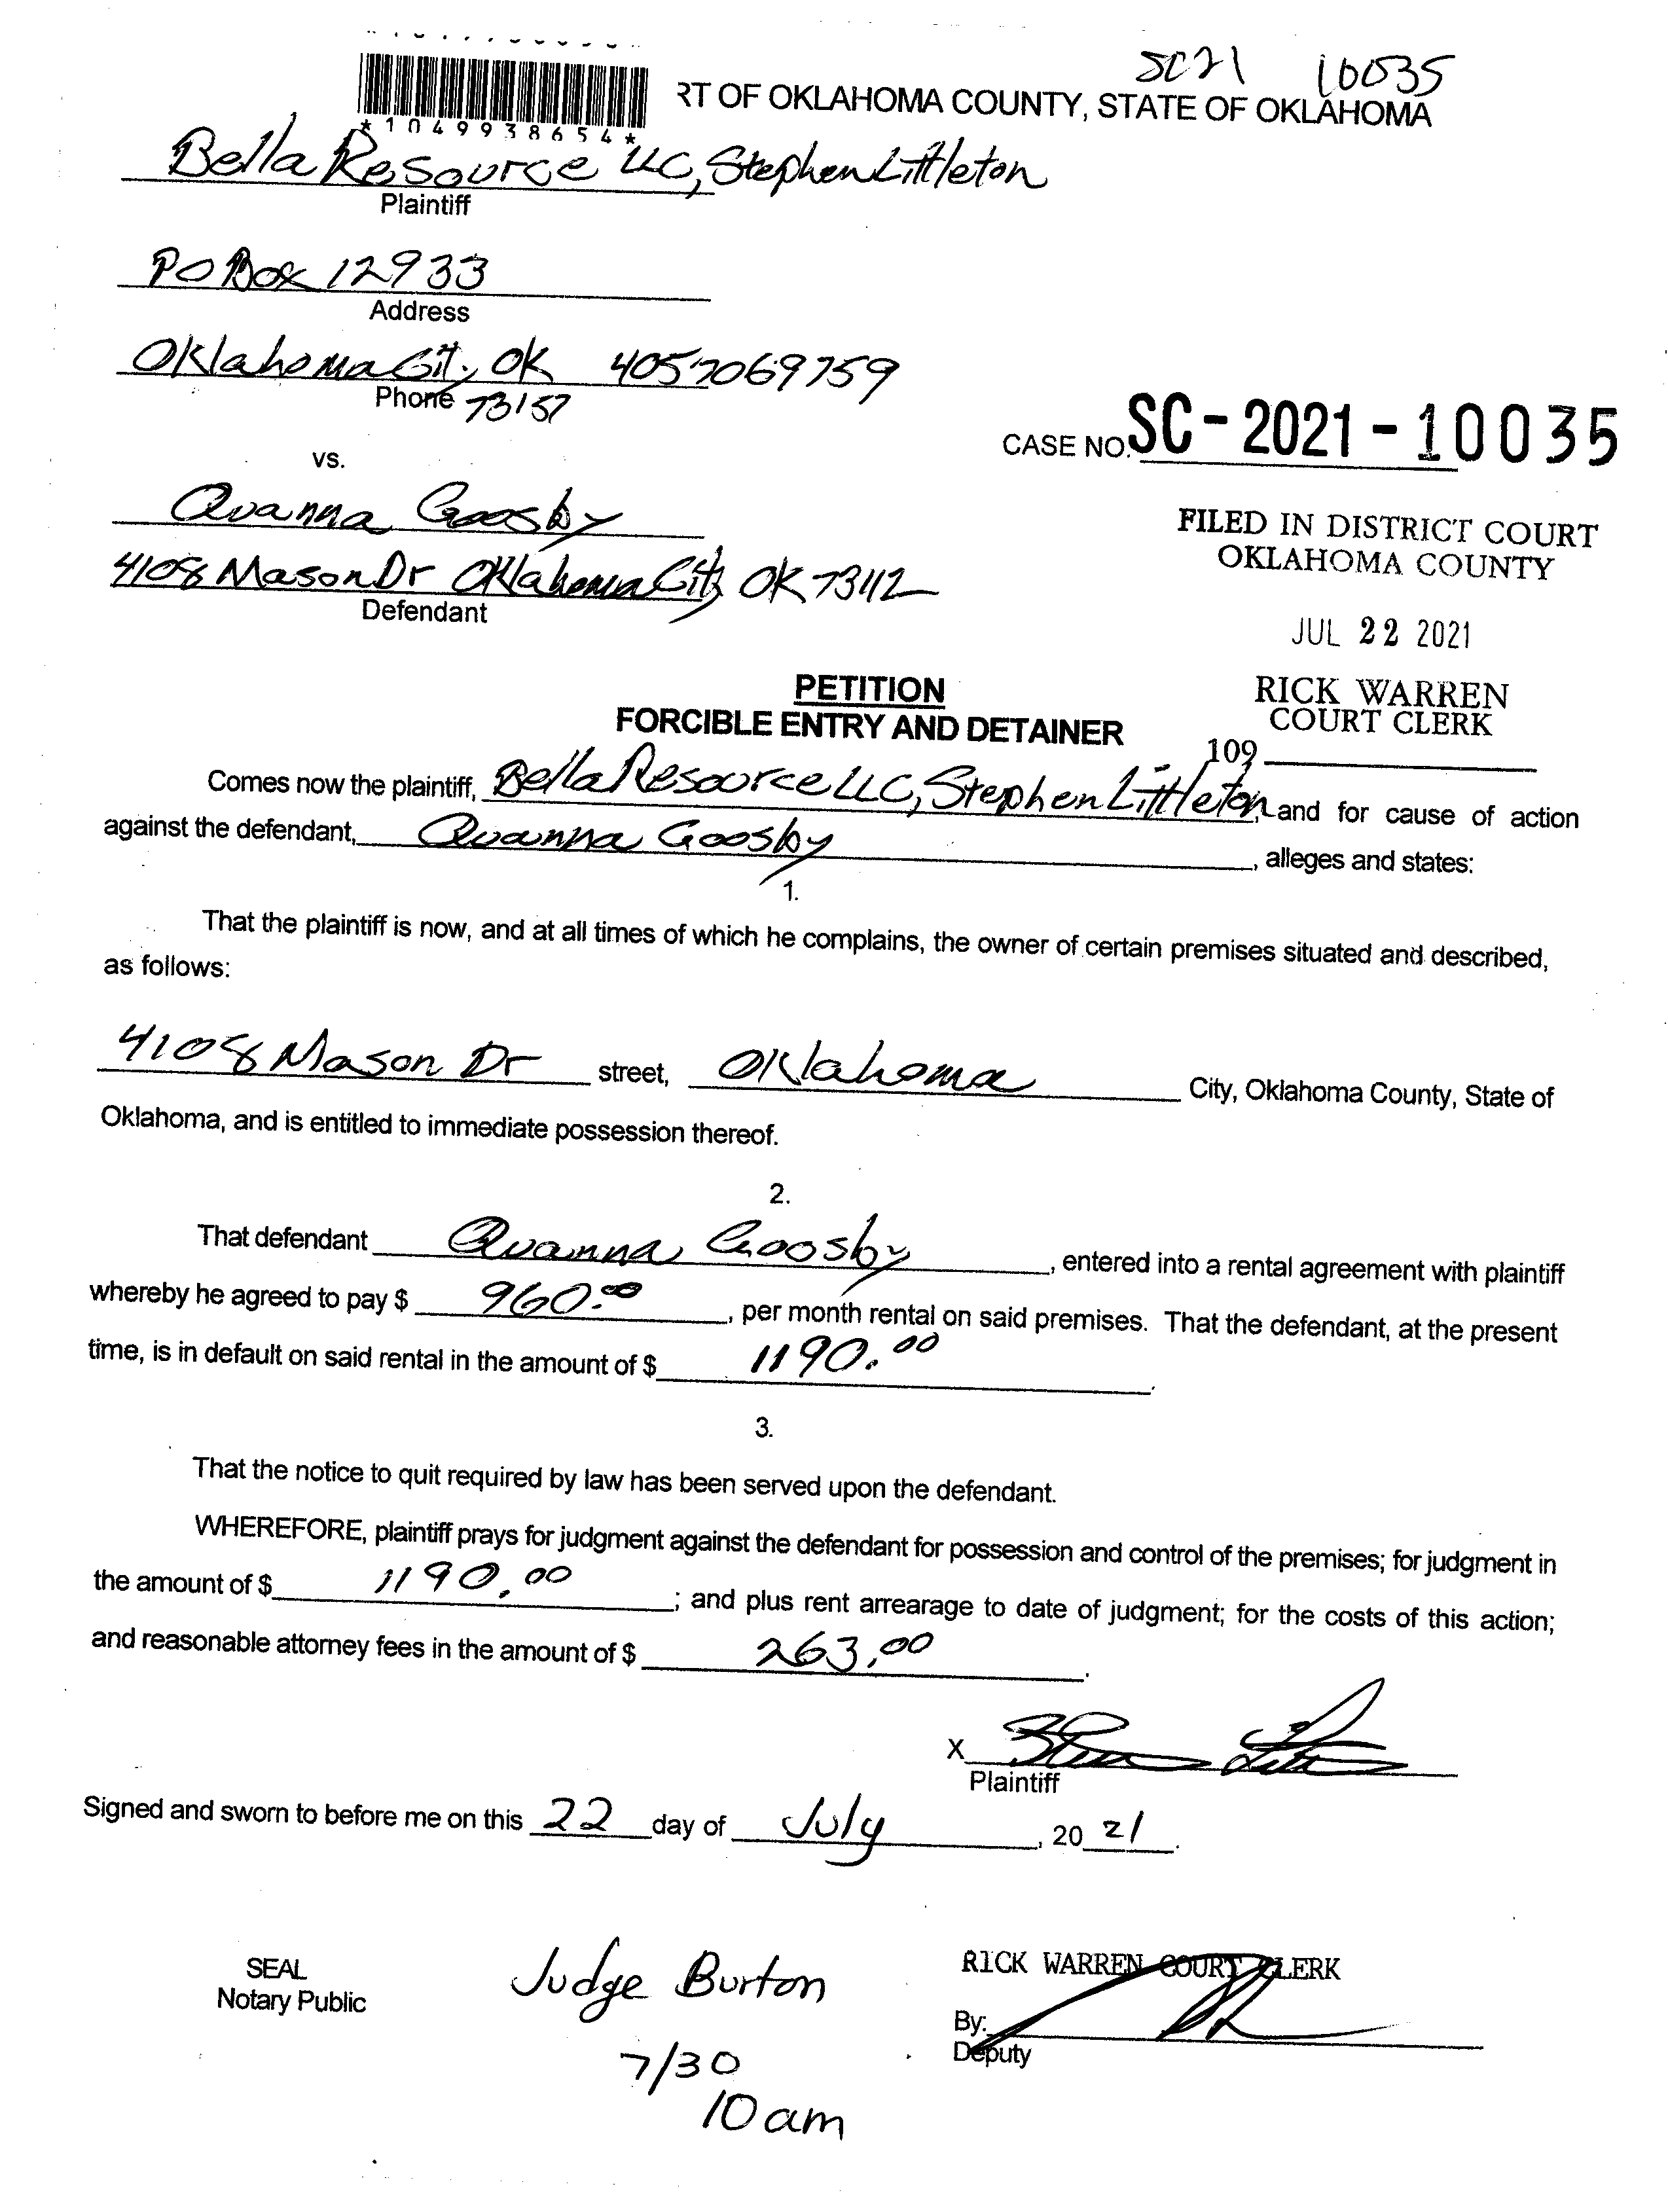 SC21 10035
RT OF OKLAHOMA COUNTY, STATE OF OKLAHOMA
*1049938654*
Bella Resource LLC, Stephen Littleton
Plaintiff
PO Box 12933
Address
Oklahoma City, OK 4057069759
Phone 73157
CASE NO. SC-2021-10035
vs.
Qvanna Goosby
4108 Mason Dr Oklahoma City OK 73112
Defendant
FILED IN DISTRICT COURT
OKLAHOMA COUNTY
JUL 22 2021
RICK WARREN
COURT CLERK
109
PETITION
FORCIBLE ENTRY AND DETAINER
Comes now the plaintiff, Bella Resource LLC, Stephen Littleton, and for cause of action
against the defendant, Qvanna Goosby, alleges and states:
1.
That the plaintiff is now, and at all times of which he complains, the owner of certain premises situated and described,
as follows:
4108 Mason Dr street, Oklahoma City, Oklahoma County, State of
Oklahoma, and is entitled to immediate possession thereof.
2.
That defendant Qvanna Goosby, entered into a rental agreement with plaintiff
whereby he agreed to pay $ 960.00, per month rental on said premises. That the defendant, at the present
time, is in default on said rental in the amount of $ 1190.00.
3.
That the notice to quit required by law has been served upon the defendant.
WHEREFORE, plaintiff prays for judgment against the defendant for possession and control of the premises; for judgment in
the amount of $ 1190.00; and plus rent arrearage to date of judgment; for the costs of this action;
and reasonable attorney fees in the amount of $ 263.00.
X
Plaintiff
Signed and sworn to before me on this 22 day of July, 20 21.
SEAL
Notary Public
Judge Burton
7/30
10 am
RICK WARREN COURT CLERK
By:
Deputy